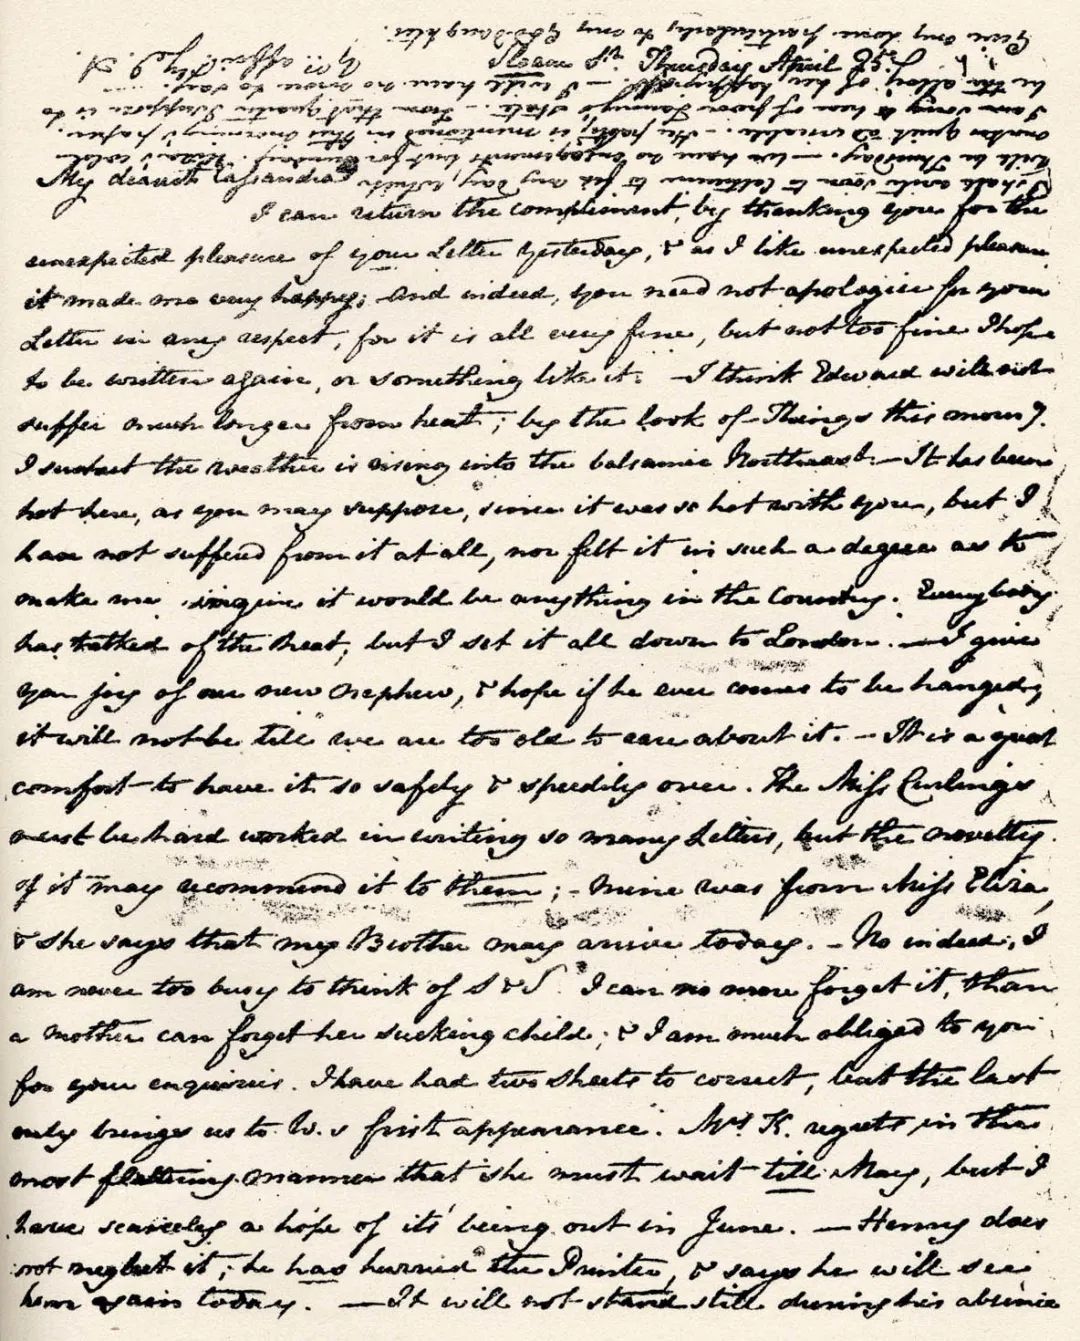 Sloane St. Thursday April 25th
My dearest Cassandra
I can return the compliment by thanking you for the
unexpected pleasure of your Letter yesterday, & as I like unexpected pleasure,
it made me very happy; And indeed, you need not apologise for your
Letter in any respect, for it is all very fine, but not too fine I hope
to be written again, or something like it. — I think Edward will not
suffer much longer from heat; by the look of Things this morng.
I suspect the weather is rising into the balsamic Northeast. — It has been
hot here, as you may suppose, since it was so hot with you, but I
have not suffered from it at all, nor felt it in such a degree as to
make me imagine it would be anything in the Country. Everybody
has talked of the heat, but I set it all down to London. — I give
you joy of our new nephew, & hope if he ever comes to be hanged,
it will not be till we are too old to care about it. — It is a great
comfort to have it so safely & speedily over. The Miss Curlings
must be hard worked in writing so many Letters, but the novelty
of it may recommend it to them; — mine was from Miss Eliza,
& she says that my Brother may arrive today. — No indeed, I
am never too busy to think of S & S. I can no more forget it, than
a mother can forget her sucking child; & I am much obliged to you
for your enquiries. I have had two sheets to correct, but the last
only brings us to W.s first appearance. Mrs K. regrets in the
most flattering manner that she must wait till May, but I
have scarcely a hope of its being out in June. — Henry does
not neglect it; he has hurried the Printer, & says he will see
him again today. — It will not stand still during his absence
I shall write soon to Catherine to fix my day, which
will be Thursday. — We have no engagements but for Sunday. Eliza's cold
makes quiet adviseable. — Her party is mentioned in this morning's paper.
I am sorry to hear of poor Fanny's state. — From that quarter I suppose is to
be the alloy of her happiness. — I will have no more to say. —
Yrs affecly J. A.
Give my love particularly to my God-daughter.